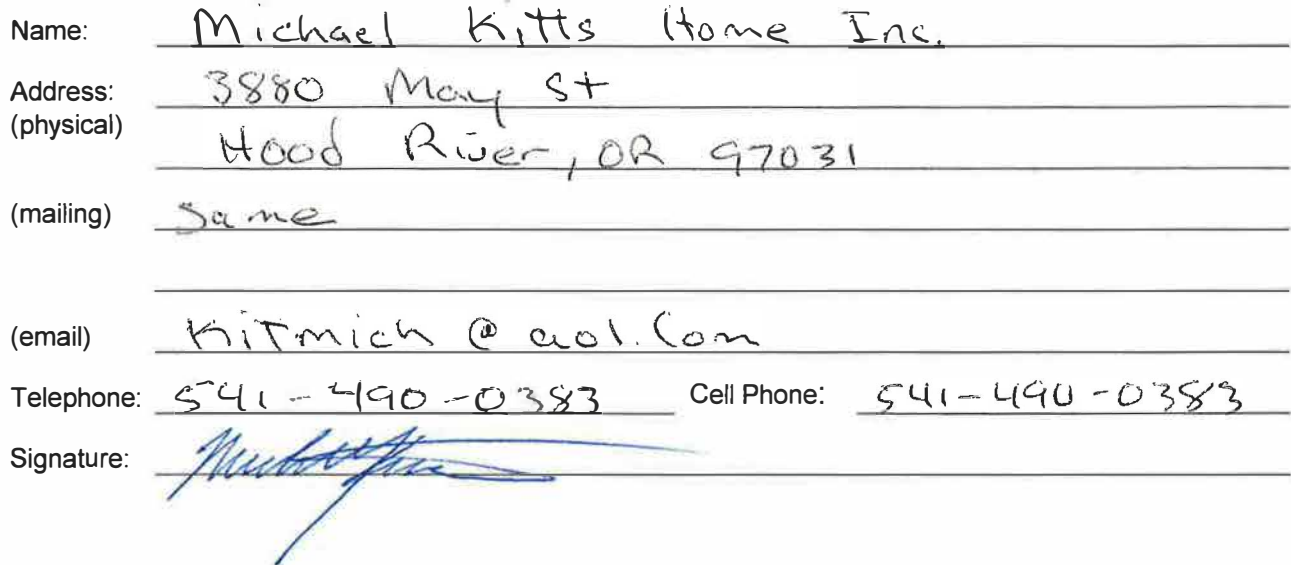 Name: Michael Kitts Home Inc.
Address: 3880 May St
(physical)
Hood River, OR 97031
(mailing) Same
(email) Kitmich @ aol.com
Telephone: 541-490-0383 Cell Phone: 541-490-0383
Signature: